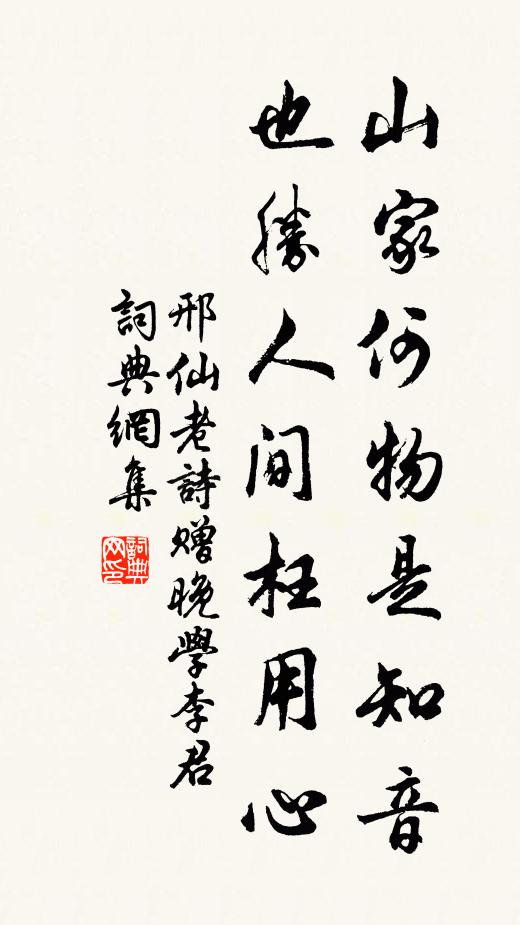 山家何物是知音
也勝人間枉用心
邢仙老詩贈晚學李君
詞典網集
詞典網印